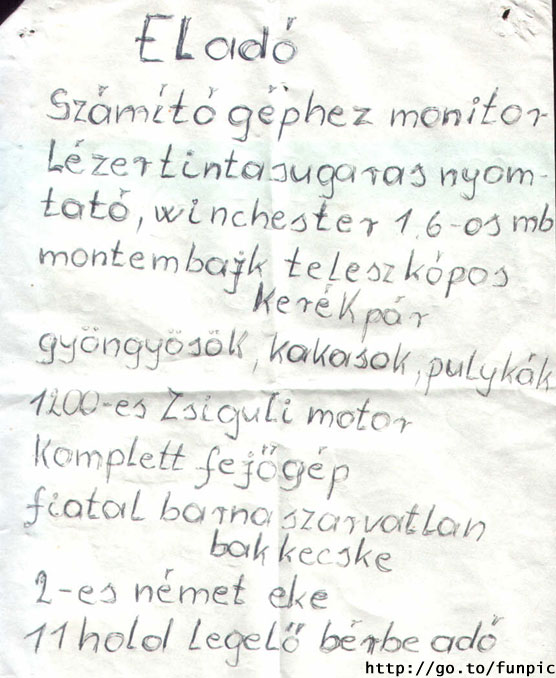 ELadó
Számító géphez monitor
Lézertintasugaras nyom-
tató, winchester 1,6-os mb
montembajk teleszkópos
kerékpár
gyöngyösök, kakasok, pulykák
1200-es Zsiguli motor
Komplett fejőgép
fiatal barna szarvatlan
bak kecske
2-es német eke
11 hold Legelő bérbe adó
http://go.to/funpic